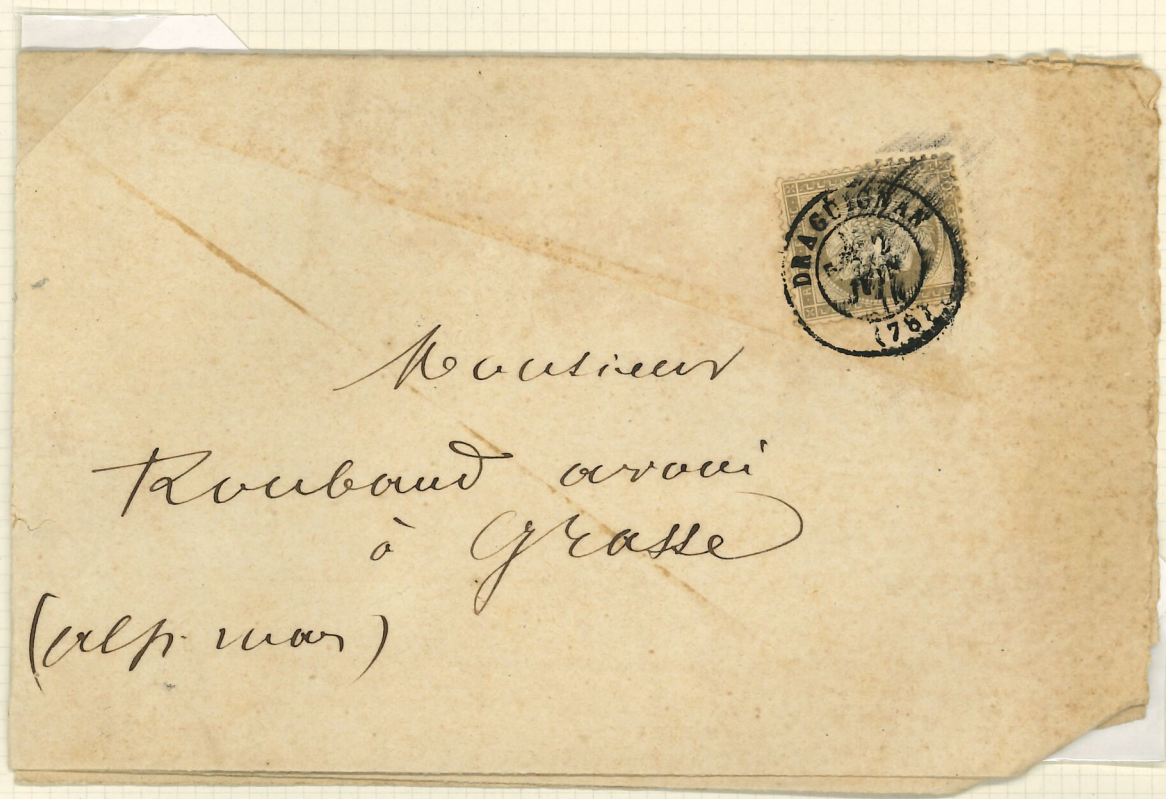 DRAGUIGNAN
JUIN
(78)
Monsieur
Roubaud avoué
à Grasse
(alp. mar)